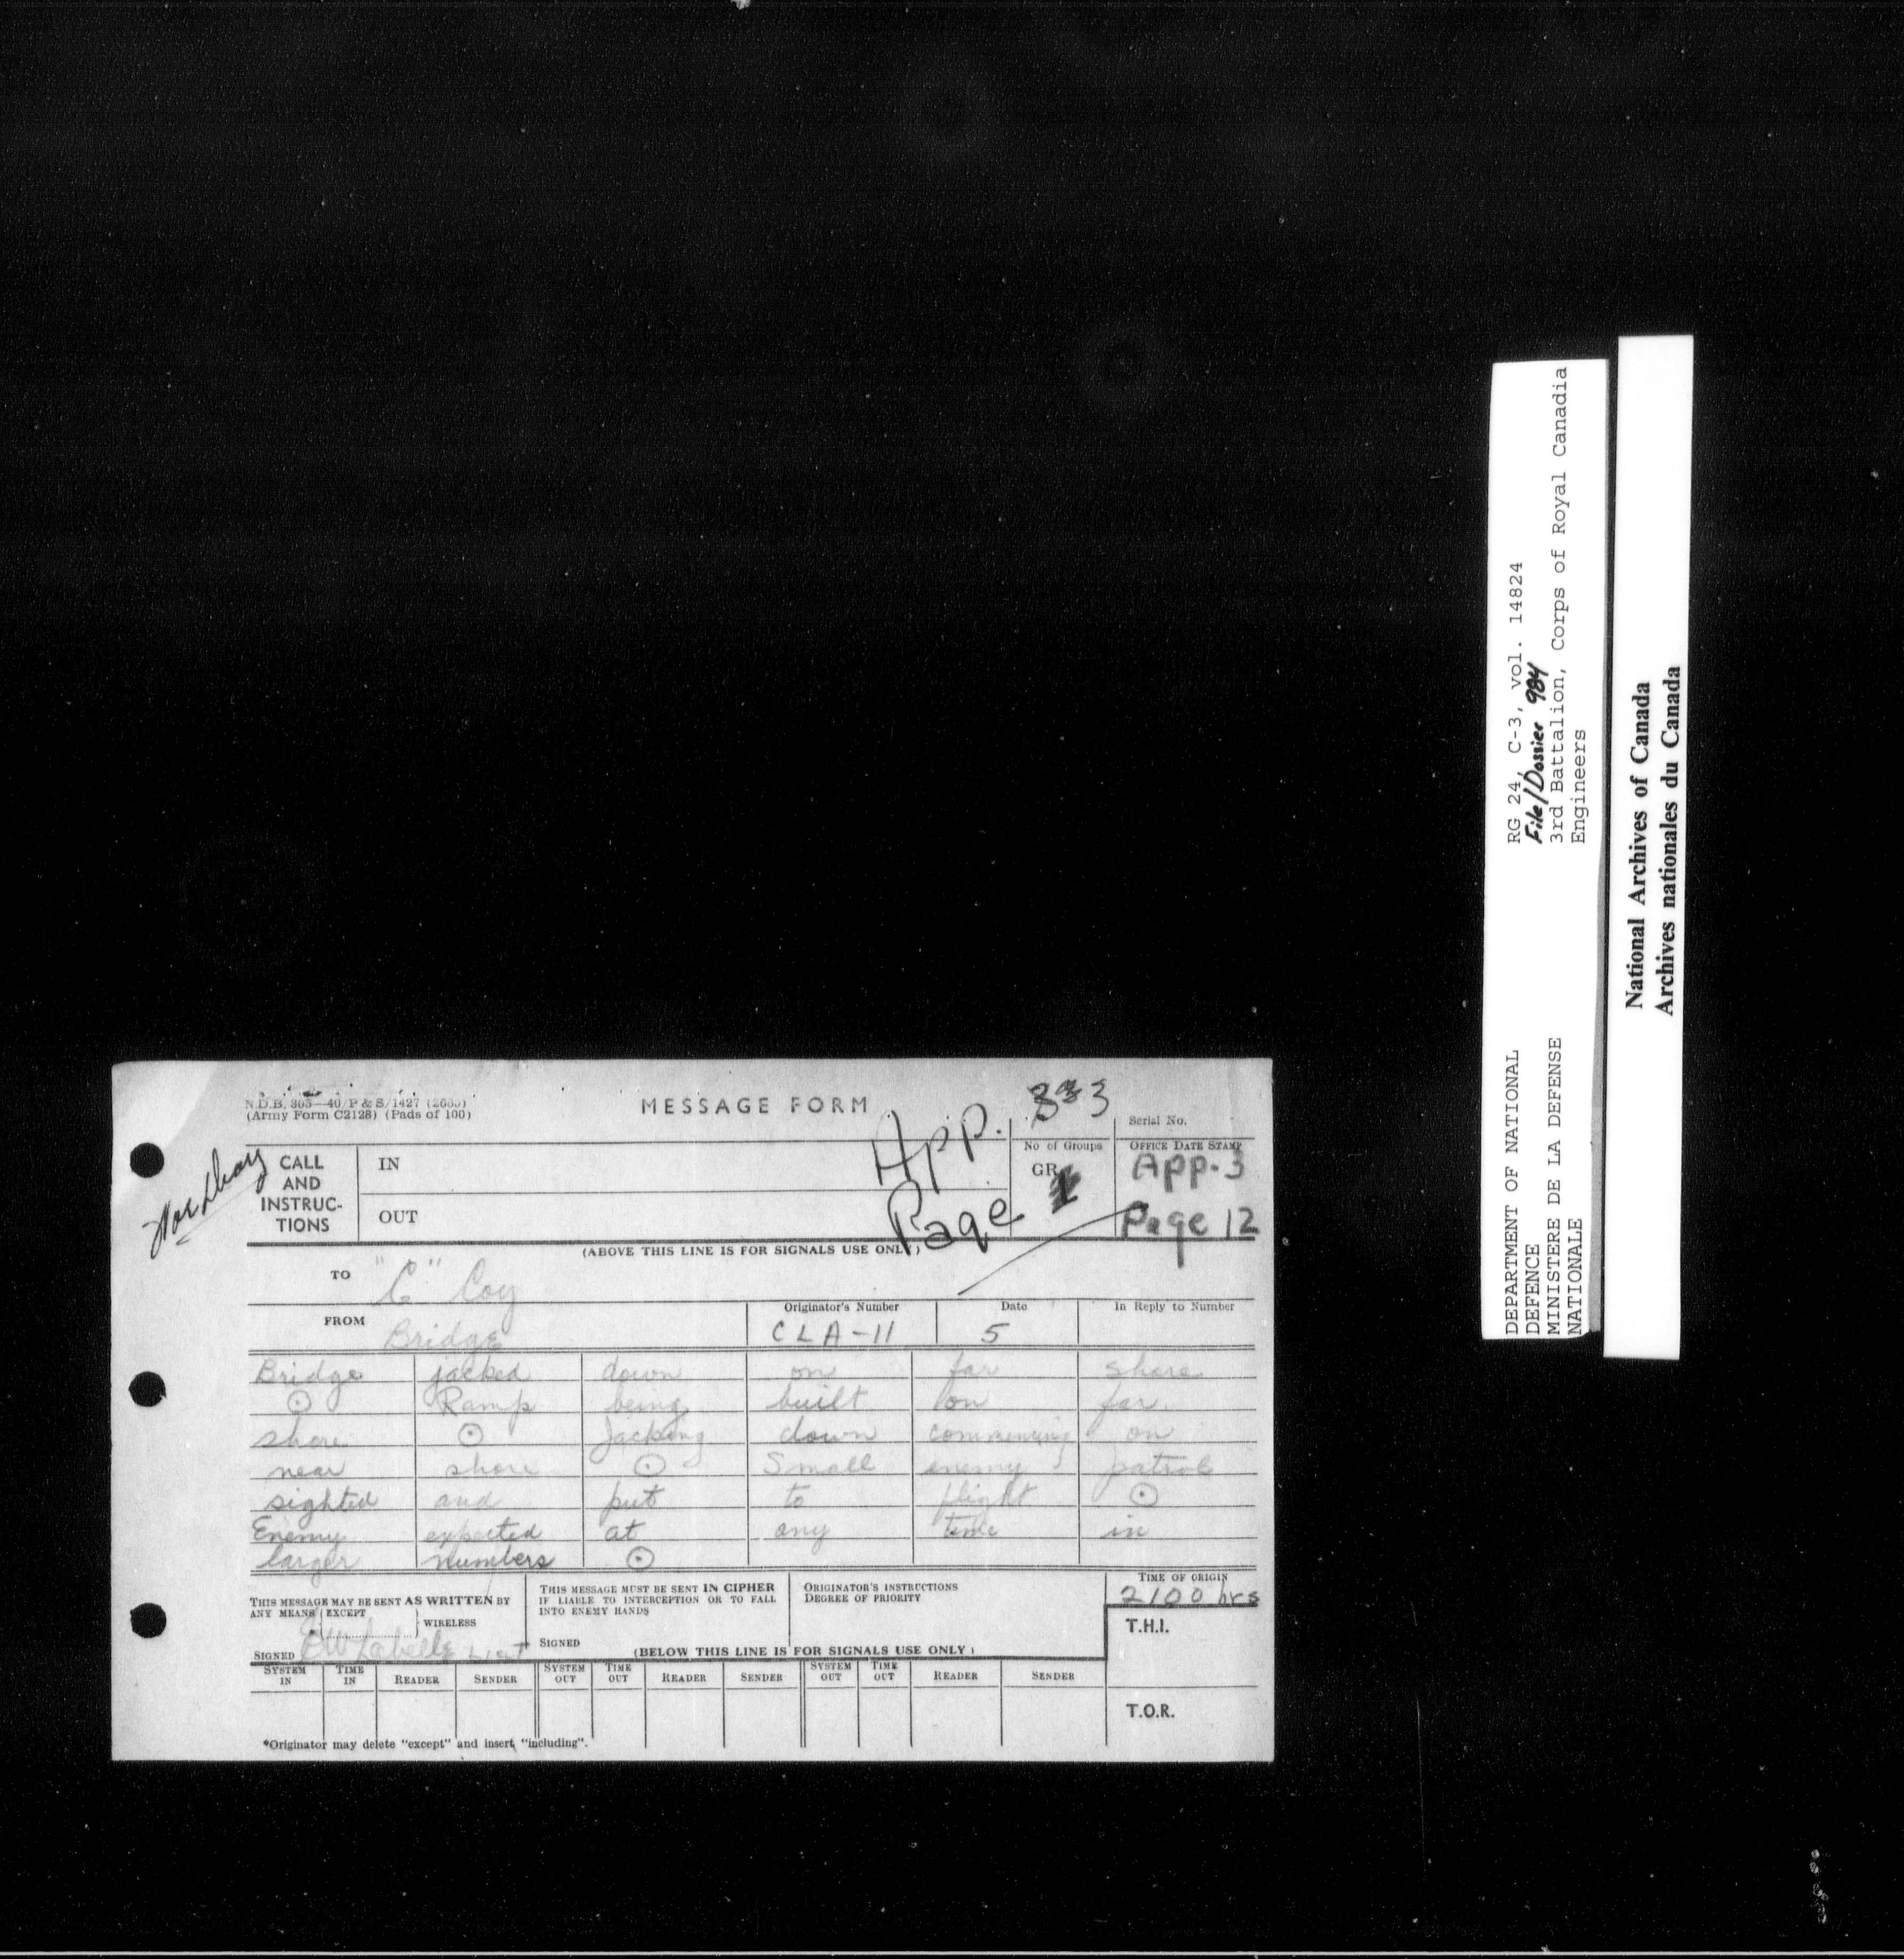 N.D.B. 365—40/P & S/1427
(Army Form C2128) (Pads of 100)
MESSAGE FORM
Serial No.
War Diary
CALL AND INSTRUC-TIONS
IN
OUT
App.
Page
No of Groups
GR
OFFICE DATE STAMP
APP. 3
Page 12
(ABOVE THIS LINE IS FOR SIGNALS USE ONLY)
TO "C" Coy
FROM Bridge
Originator's Number CLA-11
Date 5
In Reply to Number
Bridge jacked down on far shore
⊙ Ramp being built on far
shore ⊙ Jacking down commencing on
near shore ⊙ Small enemy patrol
sighted and put to flight ⊙
Enemy expected at any time in
larger numbers ⊙
THIS MESSAGE MAY BE SENT AS WRITTEN BY
ANY MEANS (EXCEPT ) WIRELESS
SIGNED Labelle Lieut
THIS MESSAGE MUST BE SENT IN CIPHER
IF LIABLE TO INTERCEPTION OR TO FALL
INTO ENEMY HANDS
SIGNED
ORIGINATOR'S INSTRUCTIONS
DEGREE OF PRIORITY
TIME OF ORIGIN
2100 hrs
T.H.I.
(BELOW THIS LINE IS FOR SIGNALS USE ONLY)
SYSTEM IN TIME IN READER SENDER SYSTEM OUT TIME OUT READER SENDER SYSTEM OUT TIME OUT READER SENDER
T.O.R.
*Originator may delete "except" and insert "including".
DEPARTMENT OF NATIONAL
DEFENCE
MINISTERE DE LA DEFENSE
NATIONALE
RG 24, C-3, vol. 14824
File/Dossier 984
3rd Battalion, Corps of Royal Canadia
Engineers
National Archives of Canada
Archives nationales du Canada